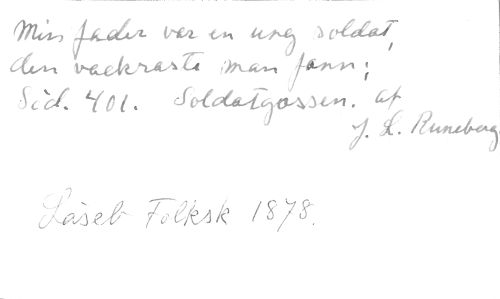 Min fader var en ung soldat,
den vackraste man fann;
Sid. 401. Soldatgossen. af
J. L. Runeberg
Läseb Folksk 1878.